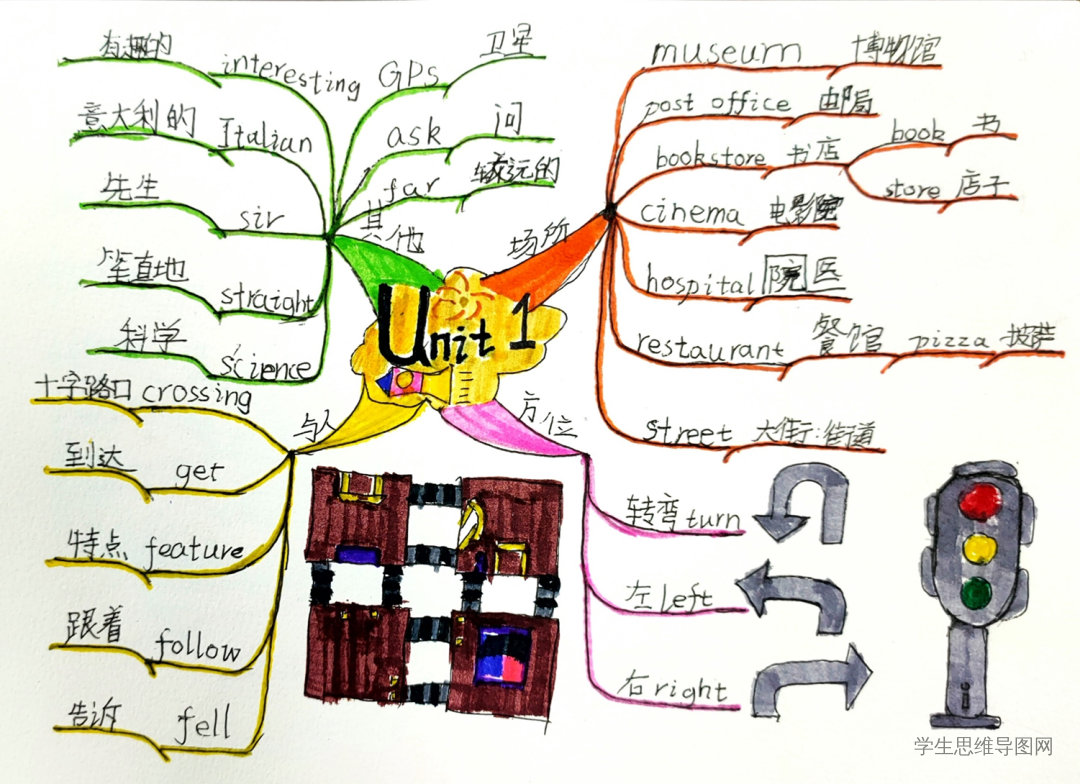 Unit 1
其他
有趣的 interesting
意大利的 Italian
先生 sir
笔直地 straight
科学 science
GPs 卫星
ask 问
far 较远的
场所
museum 博物馆
post office 邮局
bookstore 书店
book 书
store 店子
cinema 电影院
hospital 院医
restaurant 餐馆 pizza 披萨
street 大街;街道
方位
转弯 turn
左 left
右 right
十字路口 crossing
到达 get
特点 feature
跟着 follow
告诉 fell
学生思维导图网